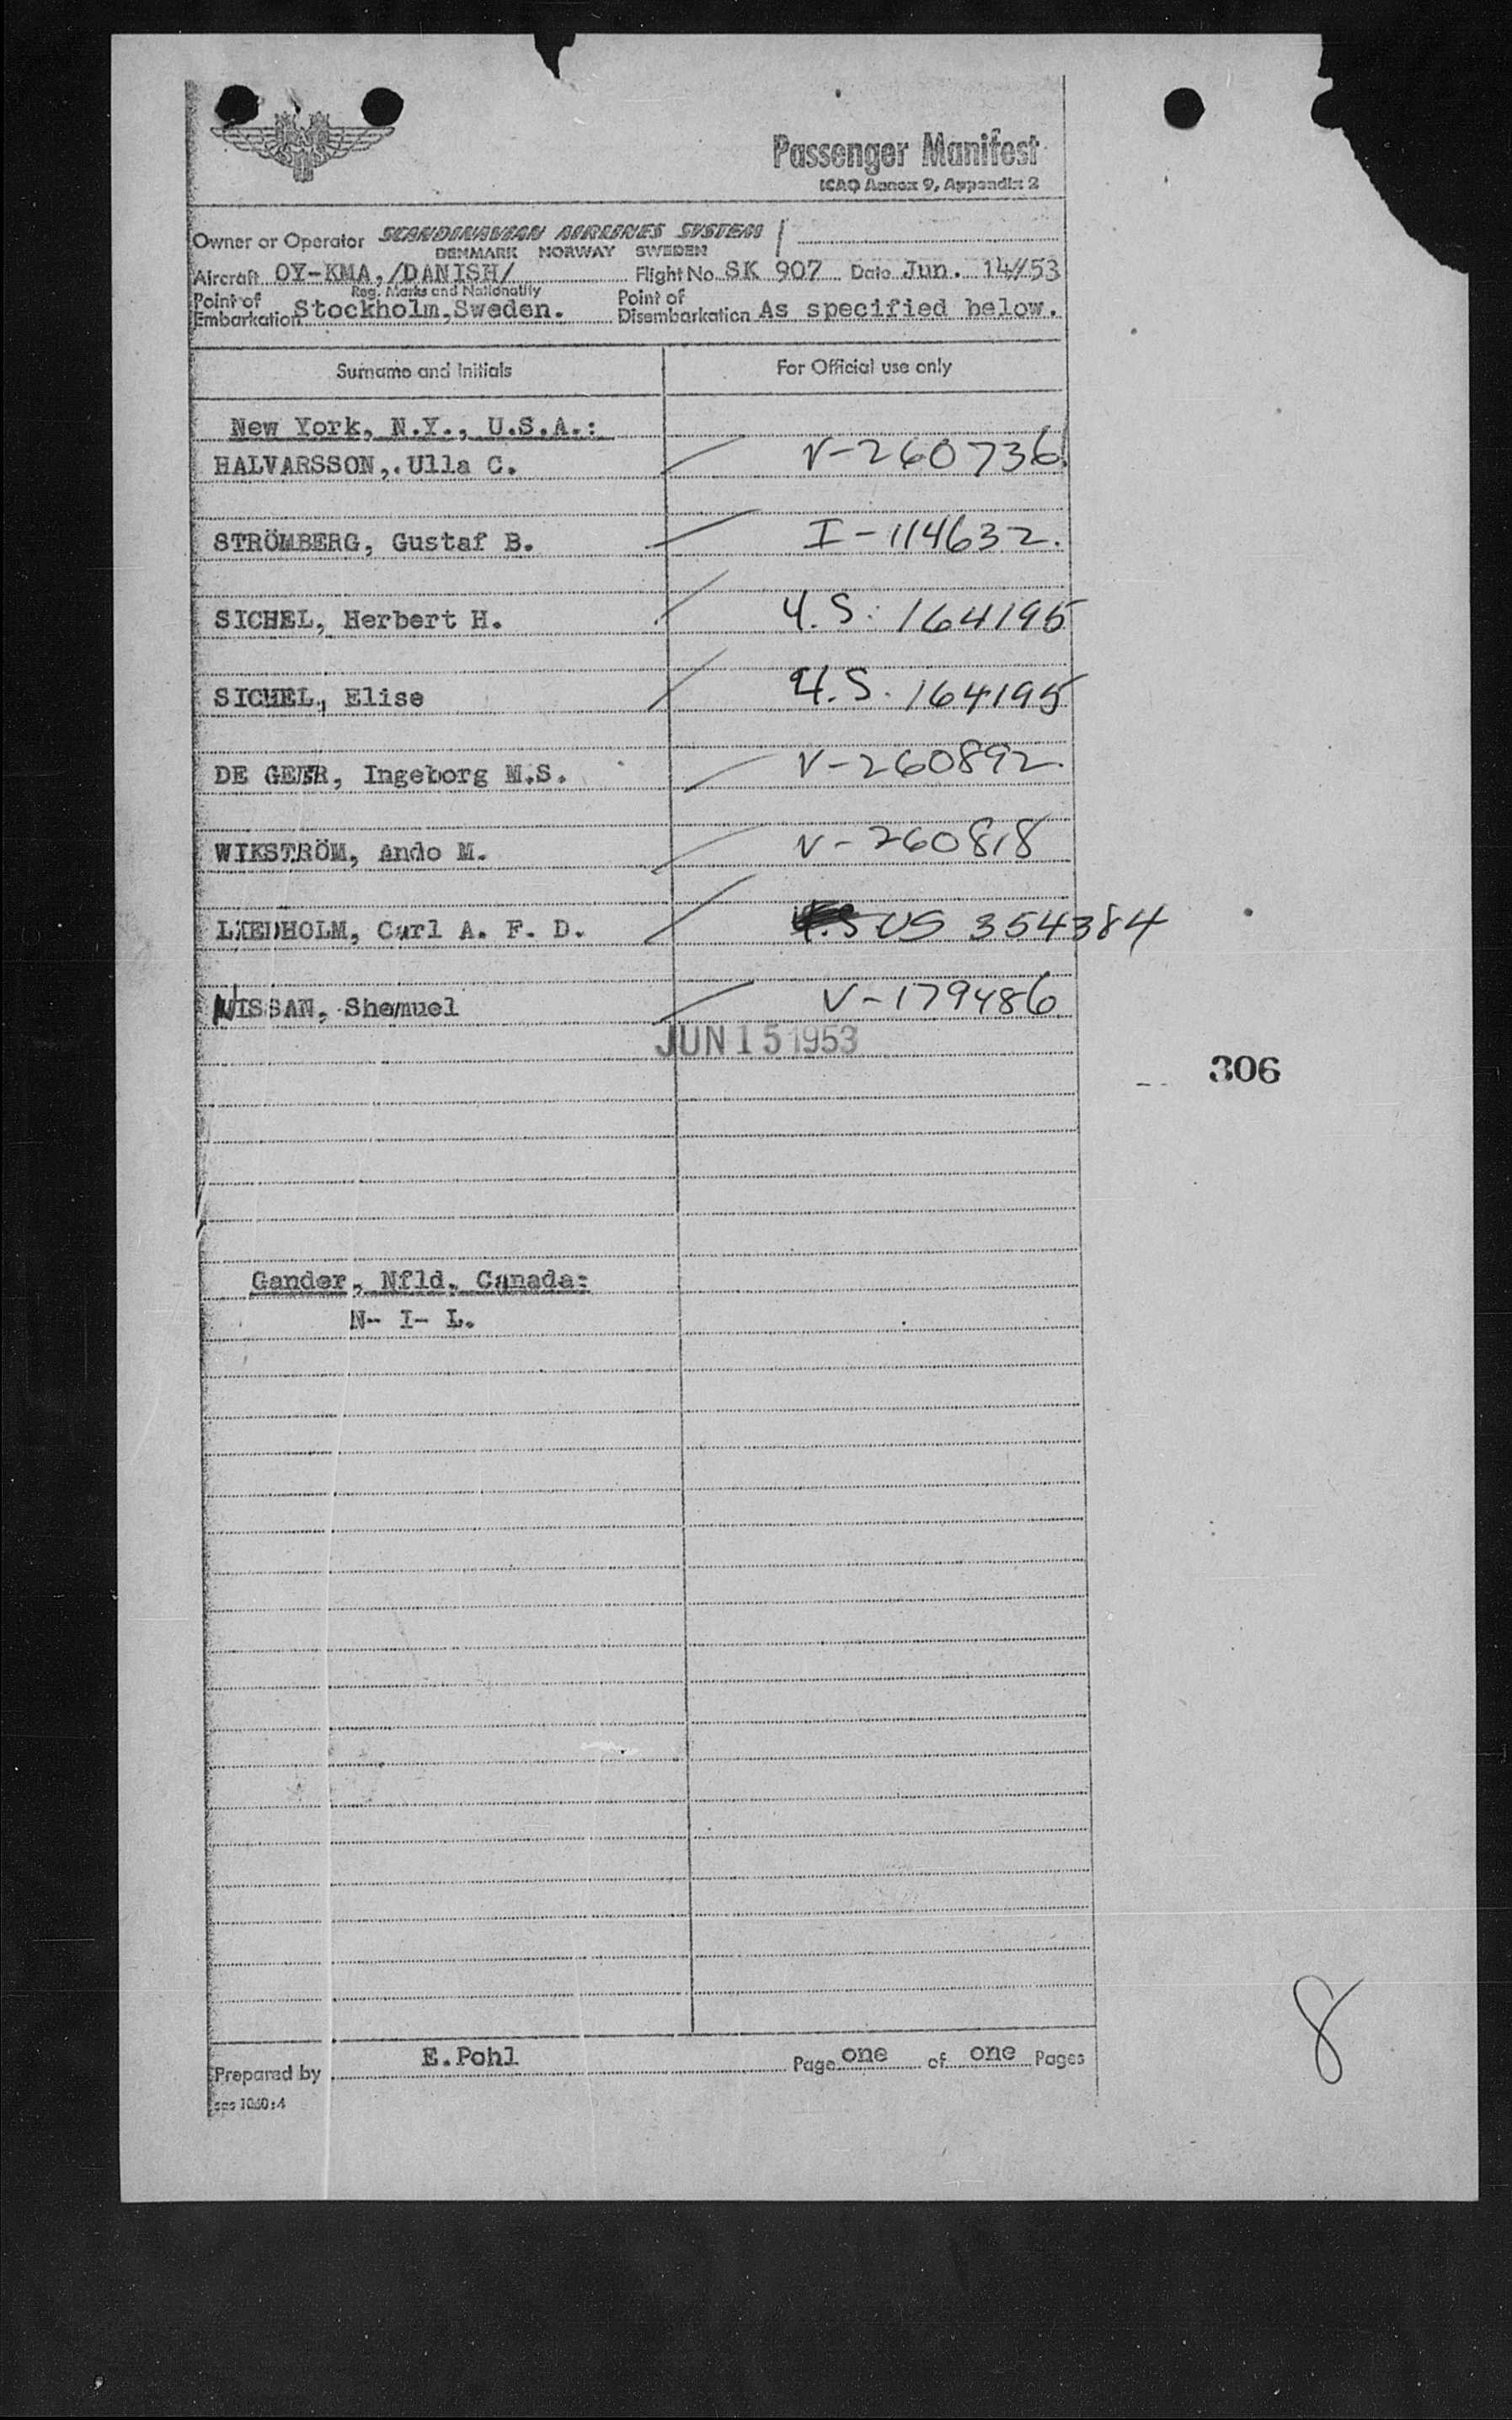 Passenger Manifest
ICAO Annex 9, Appendix 2
Owner or Operator SCANDINAVIAN AIRLINES SYSTEM
DENMARK NORWAY SWEDEN
Aircraft OY-KMA,/DANISH/ Flight No. SK 907 Date Jun. 14//53
Reg. Marks and Nationality
Point of Embarkation Stockholm,Sweden. Point of Disembarkation As specified below.
Surname and Initials For Official use only
New York, N.Y., U.S.A.:
HALVARSSON, Ulla C. V-260736
STRÖMBERG, Gustaf B. I-114632.
SICHEL, Herbert H. U.S. 164195
SICHEL, Elise U.S. 164195
DE GEER, Ingeborg M.S. V-260892.
WIKSTRÖM, Ando M. V-260818
LIEDHOLM, Carl A. F. D. US 354384
NISSAN, Shemuel V-179486
JUN 15 1953
306
Gander, Nfld. Canada:
N- I- L.
8
Prepared by E.Pohl Page one of one Pages
sas 1060:4